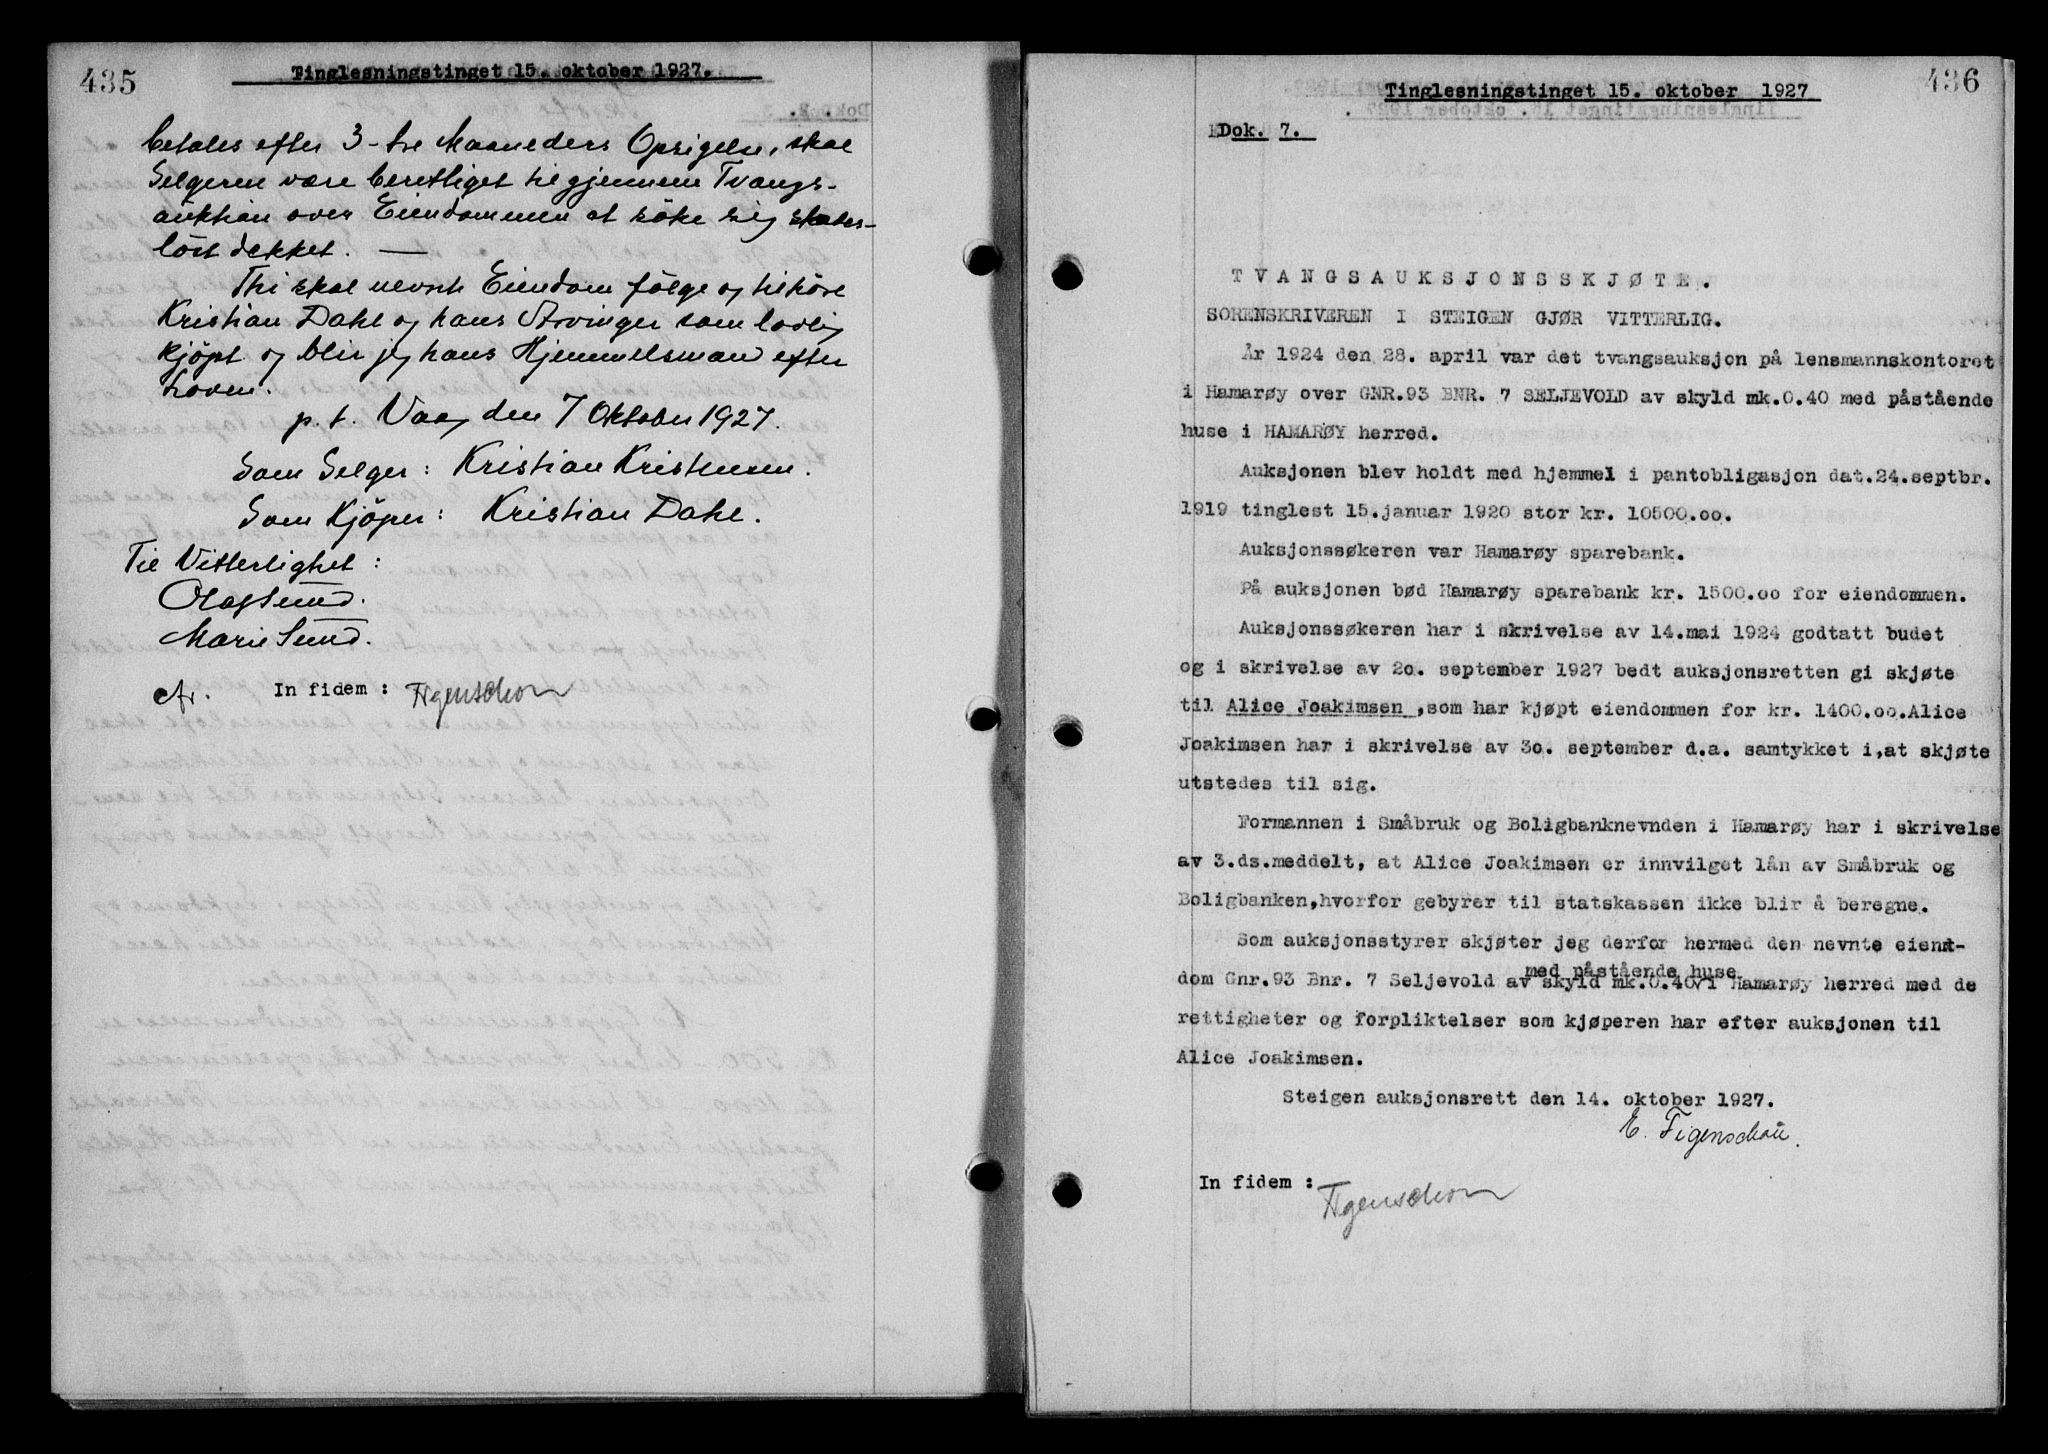 435
Tinglesningstinget 15. oktober 1927.
betales efter 3-tre Maaneders Opsigelse, skal
Selgeren være berettiget til gjennem Tvangs-
auktion over Eiendommen at söke sig skades-
löst dekket. —
Thi skal nevnte Eiendom fölge og tilhöre
Kristian Dahl og hans Arvinger som lovlig
kjöpt og blir jeg hans Hjemmelsmand efter
Loven.
p. t. Vaag den 7 Oktober 1927.
Som Selger: Kristian Kristensen.
Som Kjöper: Kristian Dahl.
Til Vitterlighet:
Olaf Sund.
Marie Sund.
In fidem : Figenschou
436
Tinglesningstinget 15. oktober 1927
Dok. 7.
TVANGSAUKSJONSSKJØTE.
SORENSKRIVEREN I STEIGEN GJØR VITTERLIG.
År 1924 den 28. april var det tvangsauksjon på lensmannskontoret
i Hamarøy over GNR.93 BNR. 7 SELJEVOLD av skyld mk.0.40 med påstående
huse i HAMARØY herred.
Auksjonen blev holdt med hjemmel i pantobligasjon dat.24.septbr.
1919 tinglest 15.januar 1920 stor kr. 10500.oo.
Auksjonssøkeren var Hamarøy sparebank.
På auksjonen bød Hamarøy sparebank kr. 1500.oo for eiendommen.
Auksjonssøkeren har i skrivelse av 14.mai 1924 godtatt budet
og i skrivelse av 2o. september 1927 bedt auksjonsretten gi skjøte
til Alice Joakimsen ,som har kjøpt eiendommen for kr. 1400.oo.Alice
Joakimsen har i skrivelse av 3o. september d.a. samtykket i,at skjøte
utstedes til sig.
Formannen i Småbruk og Boligbanknevnden i Hamarøy har i skrivelse
av 3.ds.meddelt, at Alice Joakimsen er innvilget lån av Småbruk og
Boligbanken,hvorfor gebyrer til statskassen ikke blir å beregne.
Som auksjonsstyrer skjøter jeg derfor hermed den nevnte eien-
med påstående huse
dom Gnr.93 Bnr. 7 Seljevold av skyld mk.0.40/i Hamarøy herred med de
rettigheter og forpliktelser som kjøperen har efter auksjonen til
Alice Joakimsen.
Steigen auksjonsrett den 14. oktober 1927.
E. Figenschau.
In fidem :
Figenschou